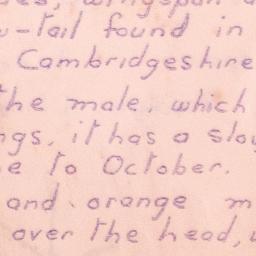 wingspan
-tail found in
Cambridgeshire
the male, which
ngs, it has a slow
e to October.
and orange m
over the head,